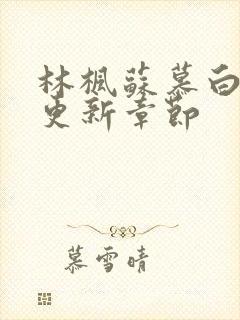 林枫蘇慕白
更新章節
慕雪晴